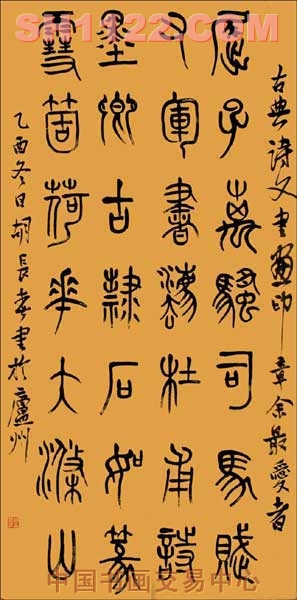 SH1122.COM
古典詩文書畫印章余最愛者
屈子离騷司馬賦
右軍書灋杜甫詩
墨卿古隸石如篆
雪箇荷華大滌山
乙酉冬日胡長春書於廬州
中国书画交易中心